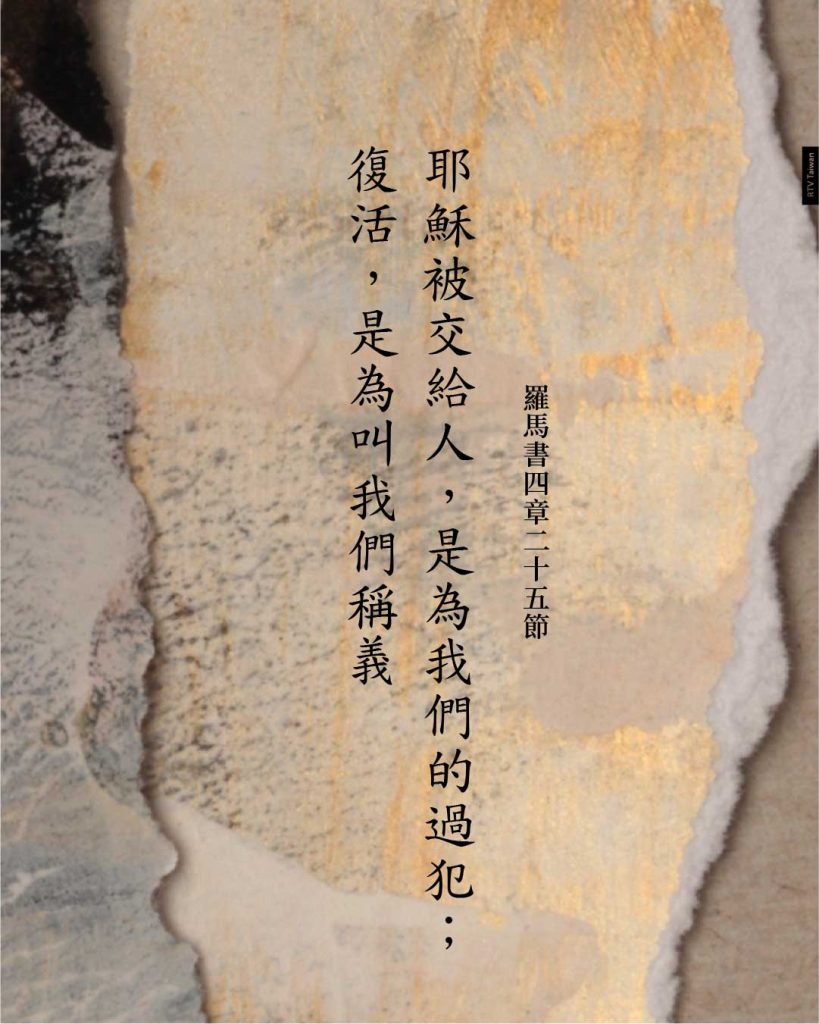 羅馬書四章二十五節
耶穌被交給人，是為我們的過犯；
復活，是為叫我們稱義
RTV Taiwan